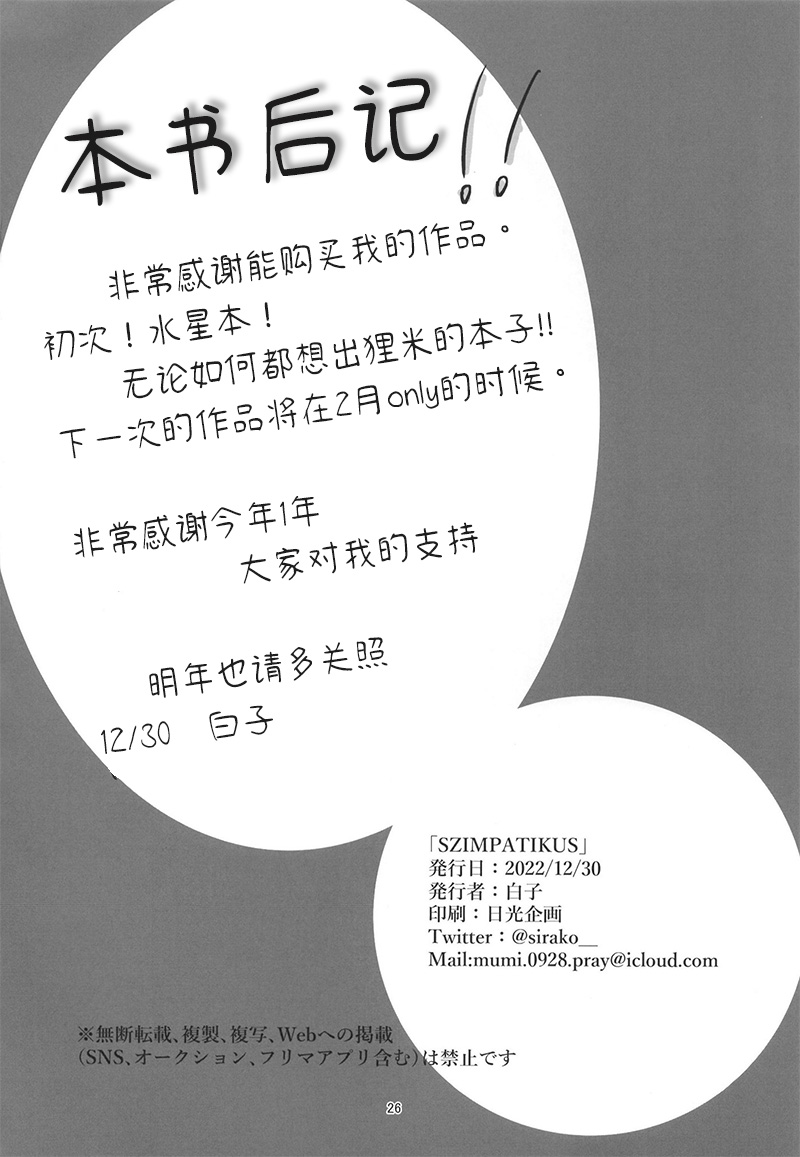 本书后记!!
非常感谢能购买我的作品。
初次！水星本！
无论如何都想出狸米的本子!!
下一次的作品将在2月only的时候。
非常感谢今年1年
大家对我的支持
明年也请多关照
12/30 白子
「SZIMPATIKUS」
発行日：2022/12/30
発行者：白子
印刷：日光企画
Twitter：@sirako__
Mail:mumi.0928.pray@icloud.com
※無断転載、複製、複写、Webへの掲載
（SNS、オークション、フリマアプリ含む）は禁止です
26